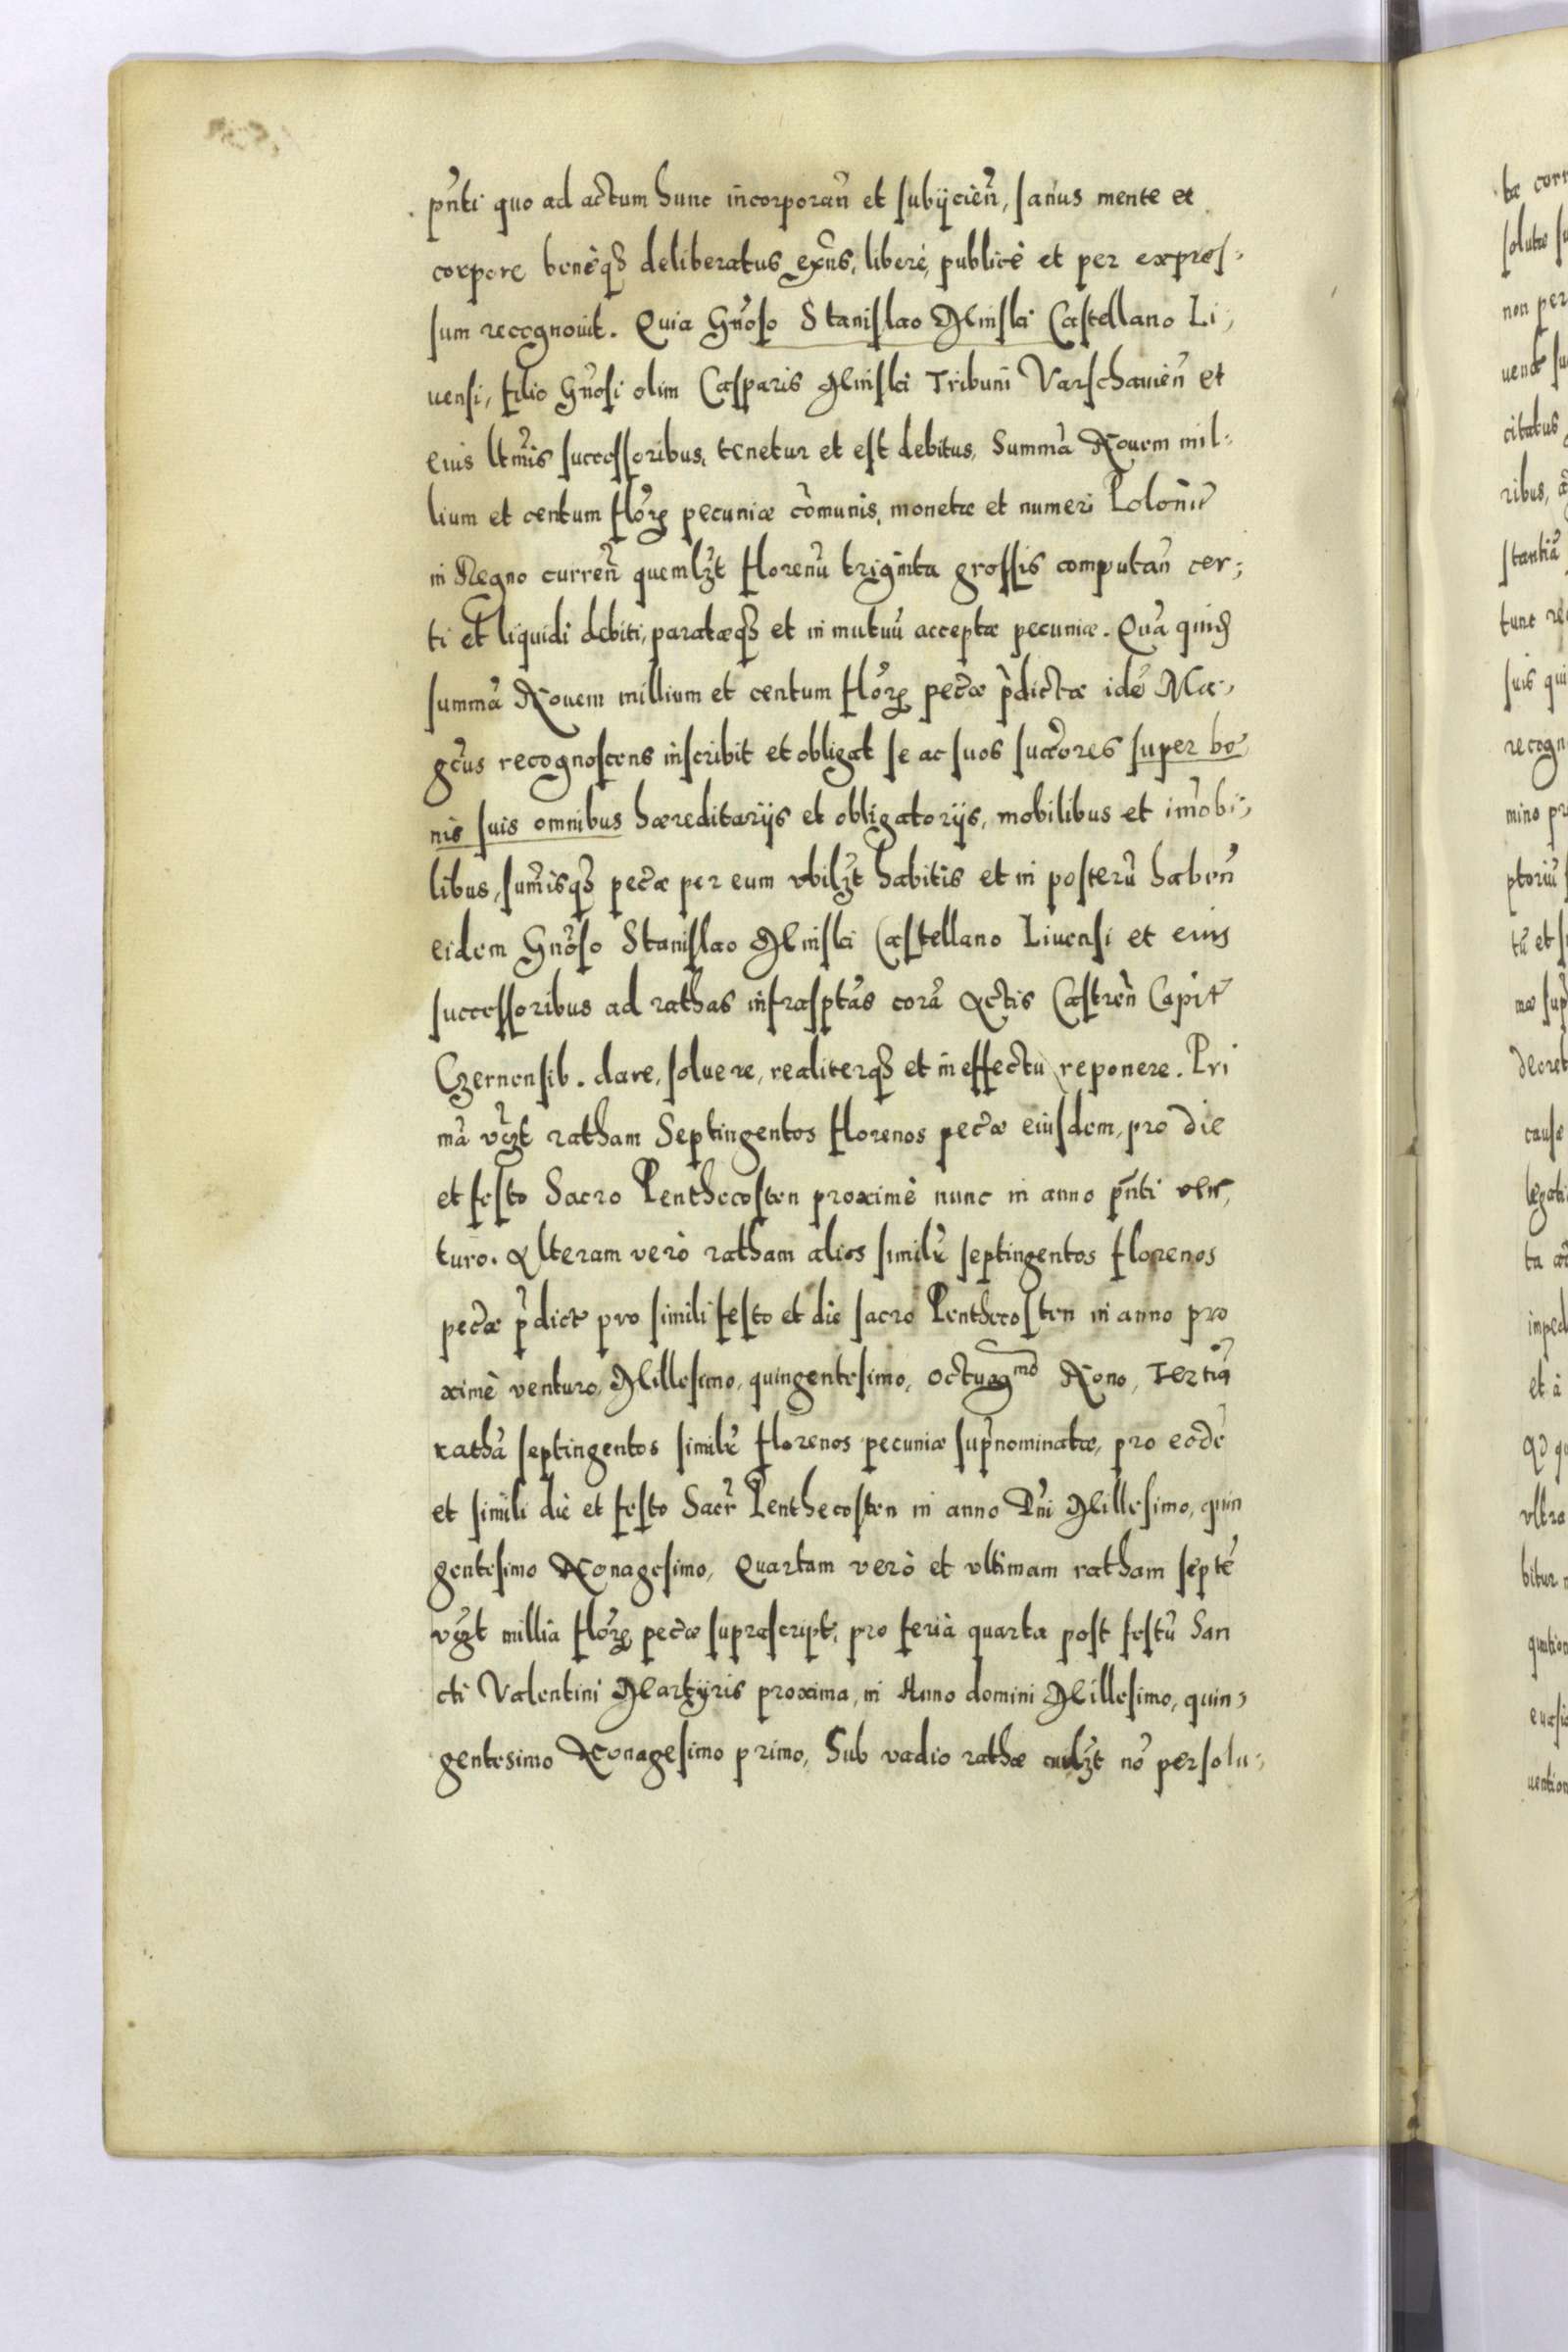 pñti quo ad actum hunc incorporañ et subÿcieñ, sanus mente et
corpore beneq3 deliberatus exñs, liberè, publicè et per expres-
sum recognouit. Quia Gnoso Stanislao Minski Castellano Li-
uensi, filio Gnosi olim Casparis Minski Tribuni Varschauieñ et
eius ltmis successoribus, tenetur et est debitus, Summã Nouem mil-
lium et centum florꝝ pecuniæ comunis, monetæ et numeri Polonie
in Regno curreñ quemlzt florenũ triginta grossis computañ cer-
ti et liquidi debiti, paratæq3 et in mutuũ acceptæ pecuniæ. Quã quidẽ
summã Nouem millium et centum florꝝ pecæ p̃dictæ idẽ Ma-
gcus recognoscens inscribit et obligat se ac suos sucores super bo-
nis suis omnibus hæreditarÿs et obligatorÿs, mobilibus et imobi-
libus, sumisq3 pecæ per eum vbilzt habitis et in posterũ habeñ
eidem Gnoso Stanislao Minski Castellano Liuensi et eius
successoribus ad rathas infrasptas corã Actis Castreñ Capit
Czernensib. dare, soluere, realiterq3 et in effectu reponere. Pri
mã vzt ratham Septingentos florenos pecæ eiusdem, pro die
et festo Sacro Penthecosten proximè nunc in anno pñti ven-
turo. Alteram verò ratham alios similr septingentos florenos
pecæ p̃dict pro simili festo et die sacro Penthecosten in anno pro
ximè venturo, Millesimo, quingentesimo, octuagmo Nono, Tertiã
rathã septingentos similr florenos pecuniæ sup̃nominatæ, pro eodẽ
et simili die et festo Sacr Penthecosten in anno Dñi Millesimo, quin
gentesimo Nonagesimo, Quartam verò et vltimam ratham septẽ
vzt millia florꝝ pecæ suprascript, pro feria quarta post festũ San
cti Valentini Martÿris proxima, in Anno domini Millesimo, quin-
gentesimo Nonagesimo primo, Sub vadio rathæ cuilzt nõ persolu-